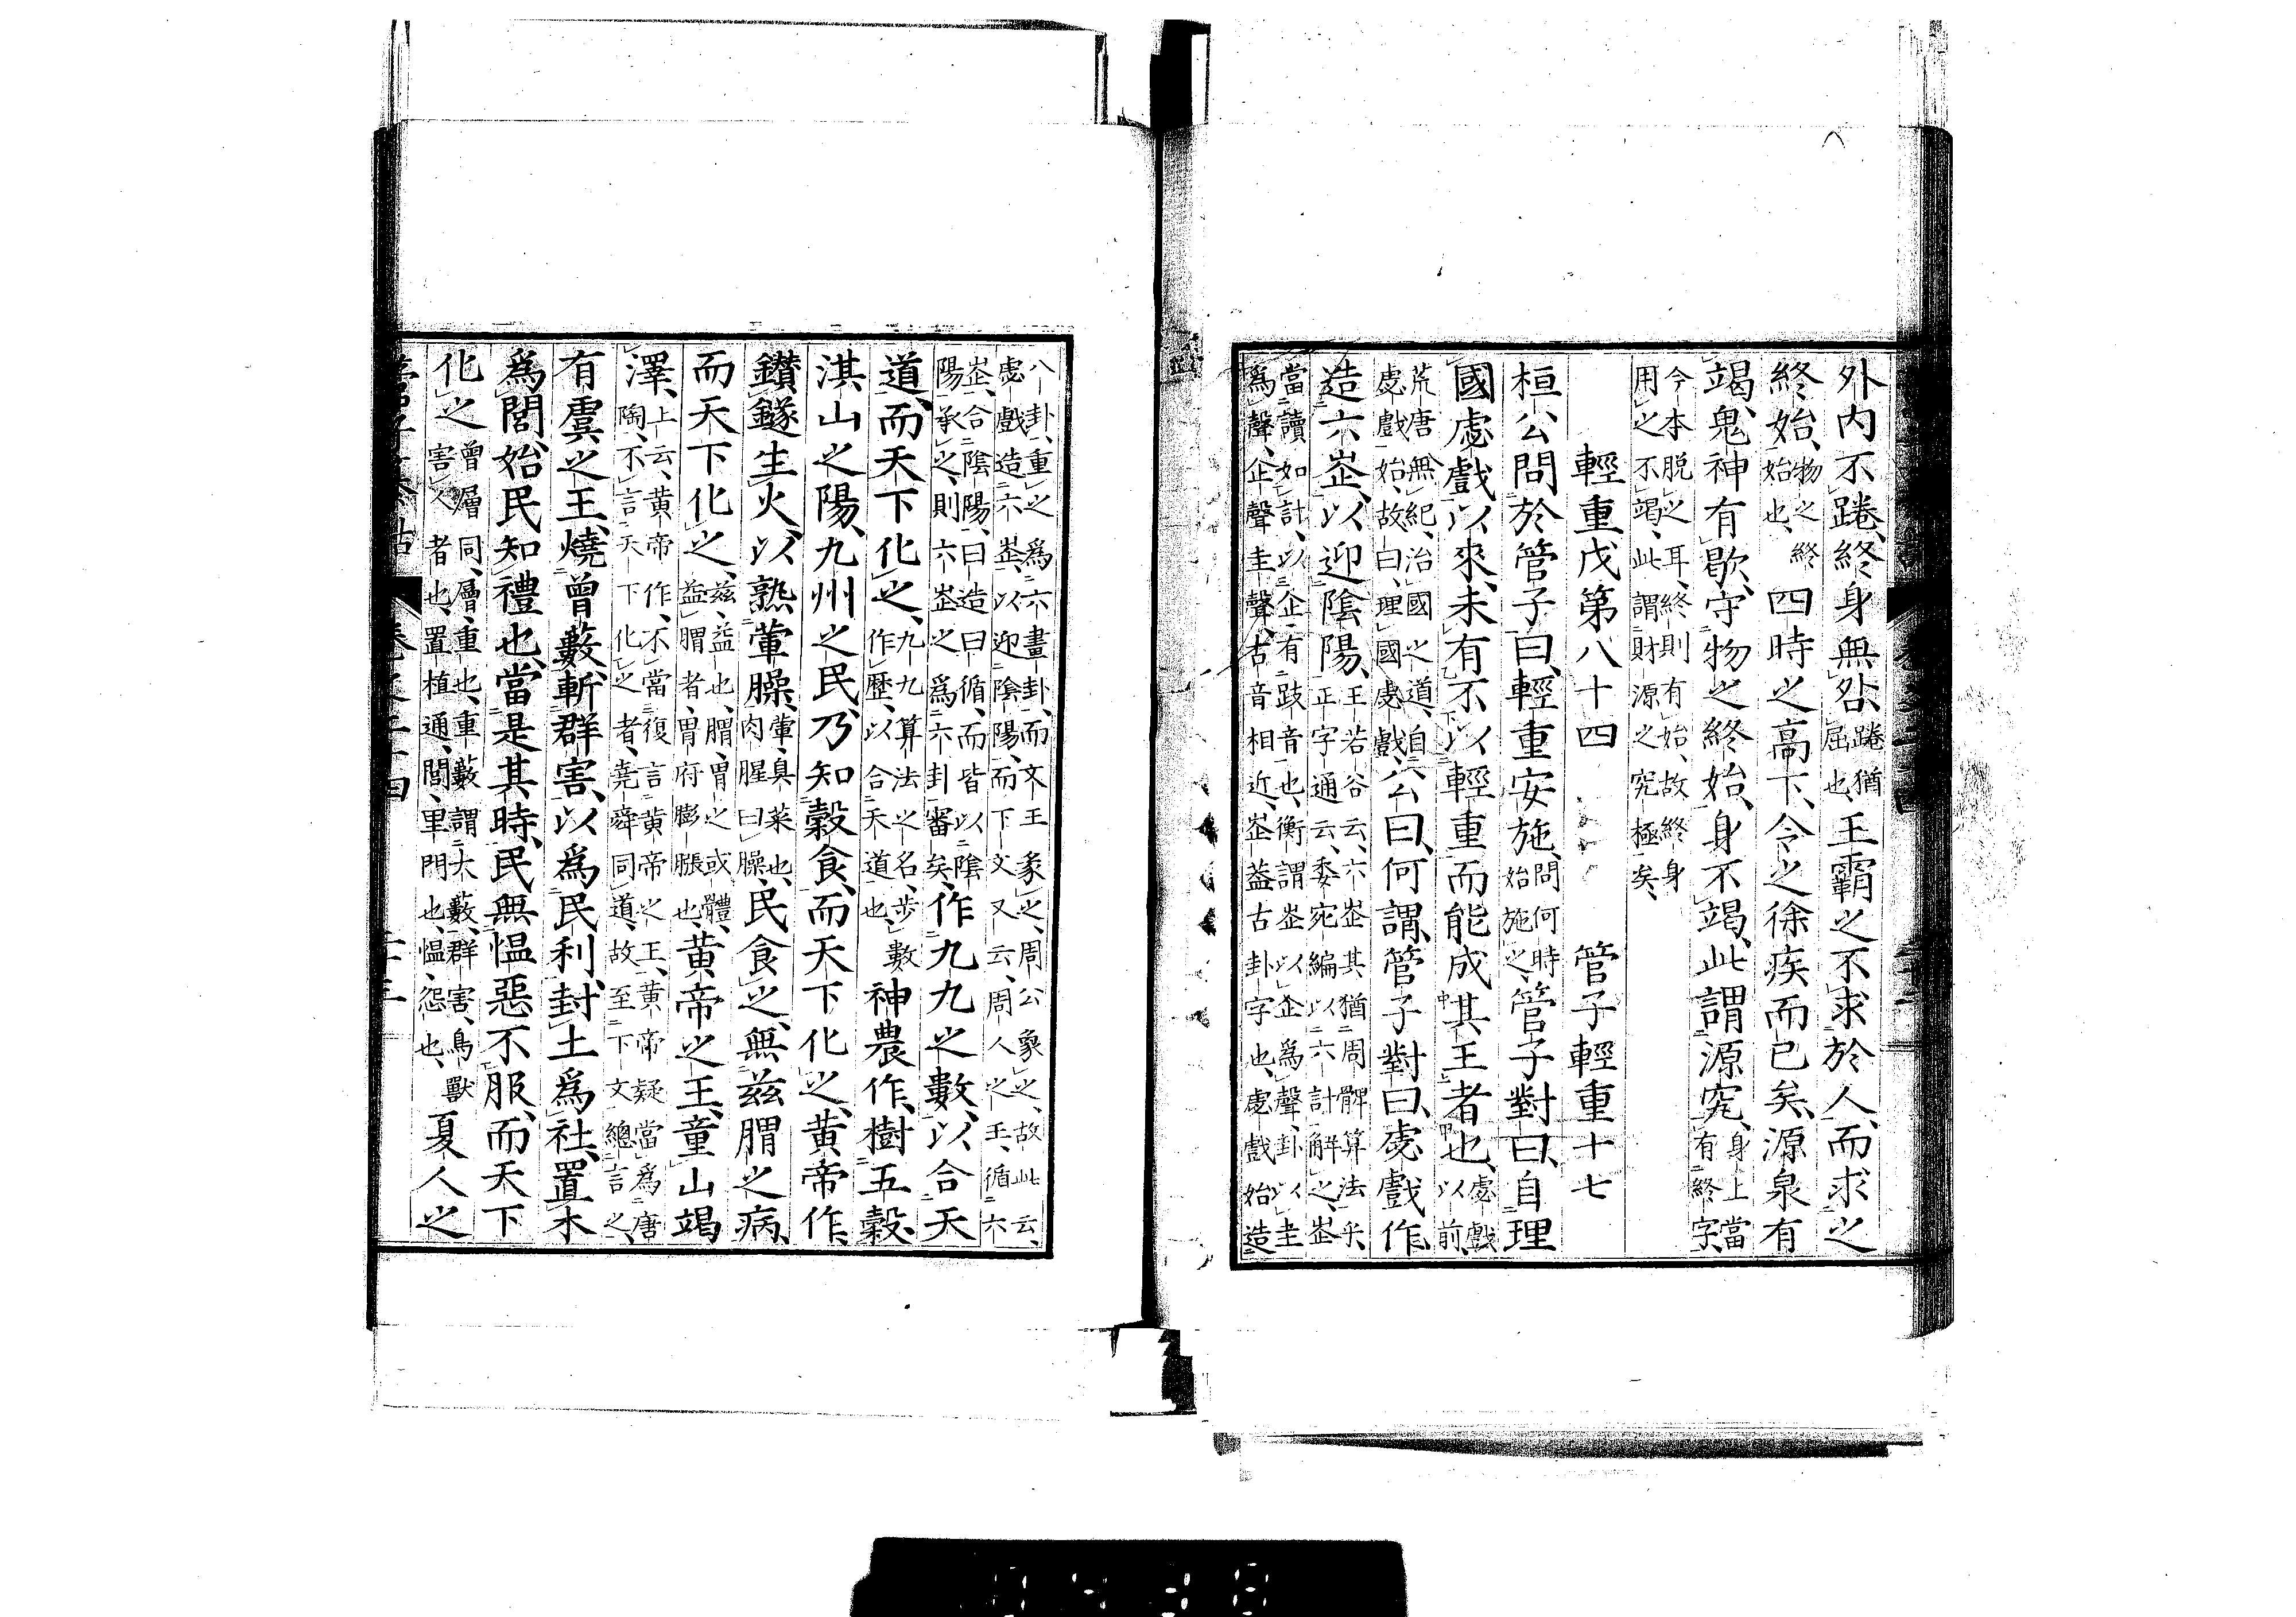 外内不踡、終身無咎、踡猶屈也、王霸之不求於人、而求之
終始、物之終始也、四時之高下、令之徐疾而已矣、源泉有
竭、鬼神有歇、守物之終始、身不竭、此謂源究、身上當有終字、
今本脱之耳、終則有始、故終身用之不竭、此謂財源之究極矣、
輕重戊第八十四　管子輕重十七
桓公問於管子曰、輕重安施、問何時始施之、管子對曰、自理
國虙戲以來、未有不以輕重而能成其王者也、虙戲以前、
荒唐無紀、治國之道、自虙戲始、故曰、理國虙戲、公曰、何謂、管子對曰、虙戲作
造六峜、以迎陰陽、王若谷云、六峜其猶周髀算法乎、正字通云、委宛編以六計解之、峜
當讀如計、以企有跂音也、衡謂峜以企爲聲、卦以圭爲聲、企聲圭聲、古音相近、峜蓋古卦字也、虙戲始造
八卦、重之爲六畫卦、而文王彖之、周公象之、故此云、虙戲造六峜、以迎陰陽、而下文又云、周人之王、循六
峜、合陰陽、曰造曰循、而皆以陰陽承之、則六峜之爲六卦審矣、作九九之數、以合天
道、而天下化之、九九算法之名、步數作歷、以合天道也、神農作、樹五穀
淇山之陽、九州之民、乃知穀食、而天下化之、黄帝作、
鑚鐩生火、以熟葷臊、葷、臭菜也、肉腥曰臊、民食之、無兹𦞅之病、
而天下化之、兹、益也、𦞅、胃之或體、益𦞅者、胃府膨脹也、黄帝之王、童山竭
澤、上云、黄帝作、不當復言黄帝之王、黄帝疑當爲唐陶、不言天下化之者、堯舜同道、故至下文總言之、
有虞之王、燒曾藪、斬群害、以爲民利、封土爲社、置木
爲閭、始民知禮也、當是其時、民無慍惡不服、而天下
化之、曾層同、層、重也、重藪謂大藪、群害、鳥獸害人者也、置植通、閭、里門也、慍、怨也、夏人之